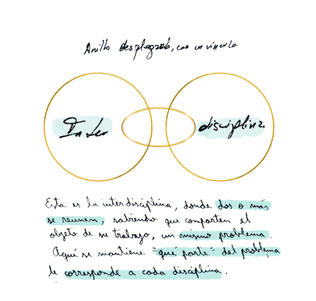 Anillo desplegado, con un vínculo
Inter
disciplina
Esta es la interdisciplina, donde dos o más
se reunen, sabiendo que comparten el
objeto de su trabajo, un mismo problema.
Aquí se mantiene "qué parte" del problema
le corresponde a cada disciplina.